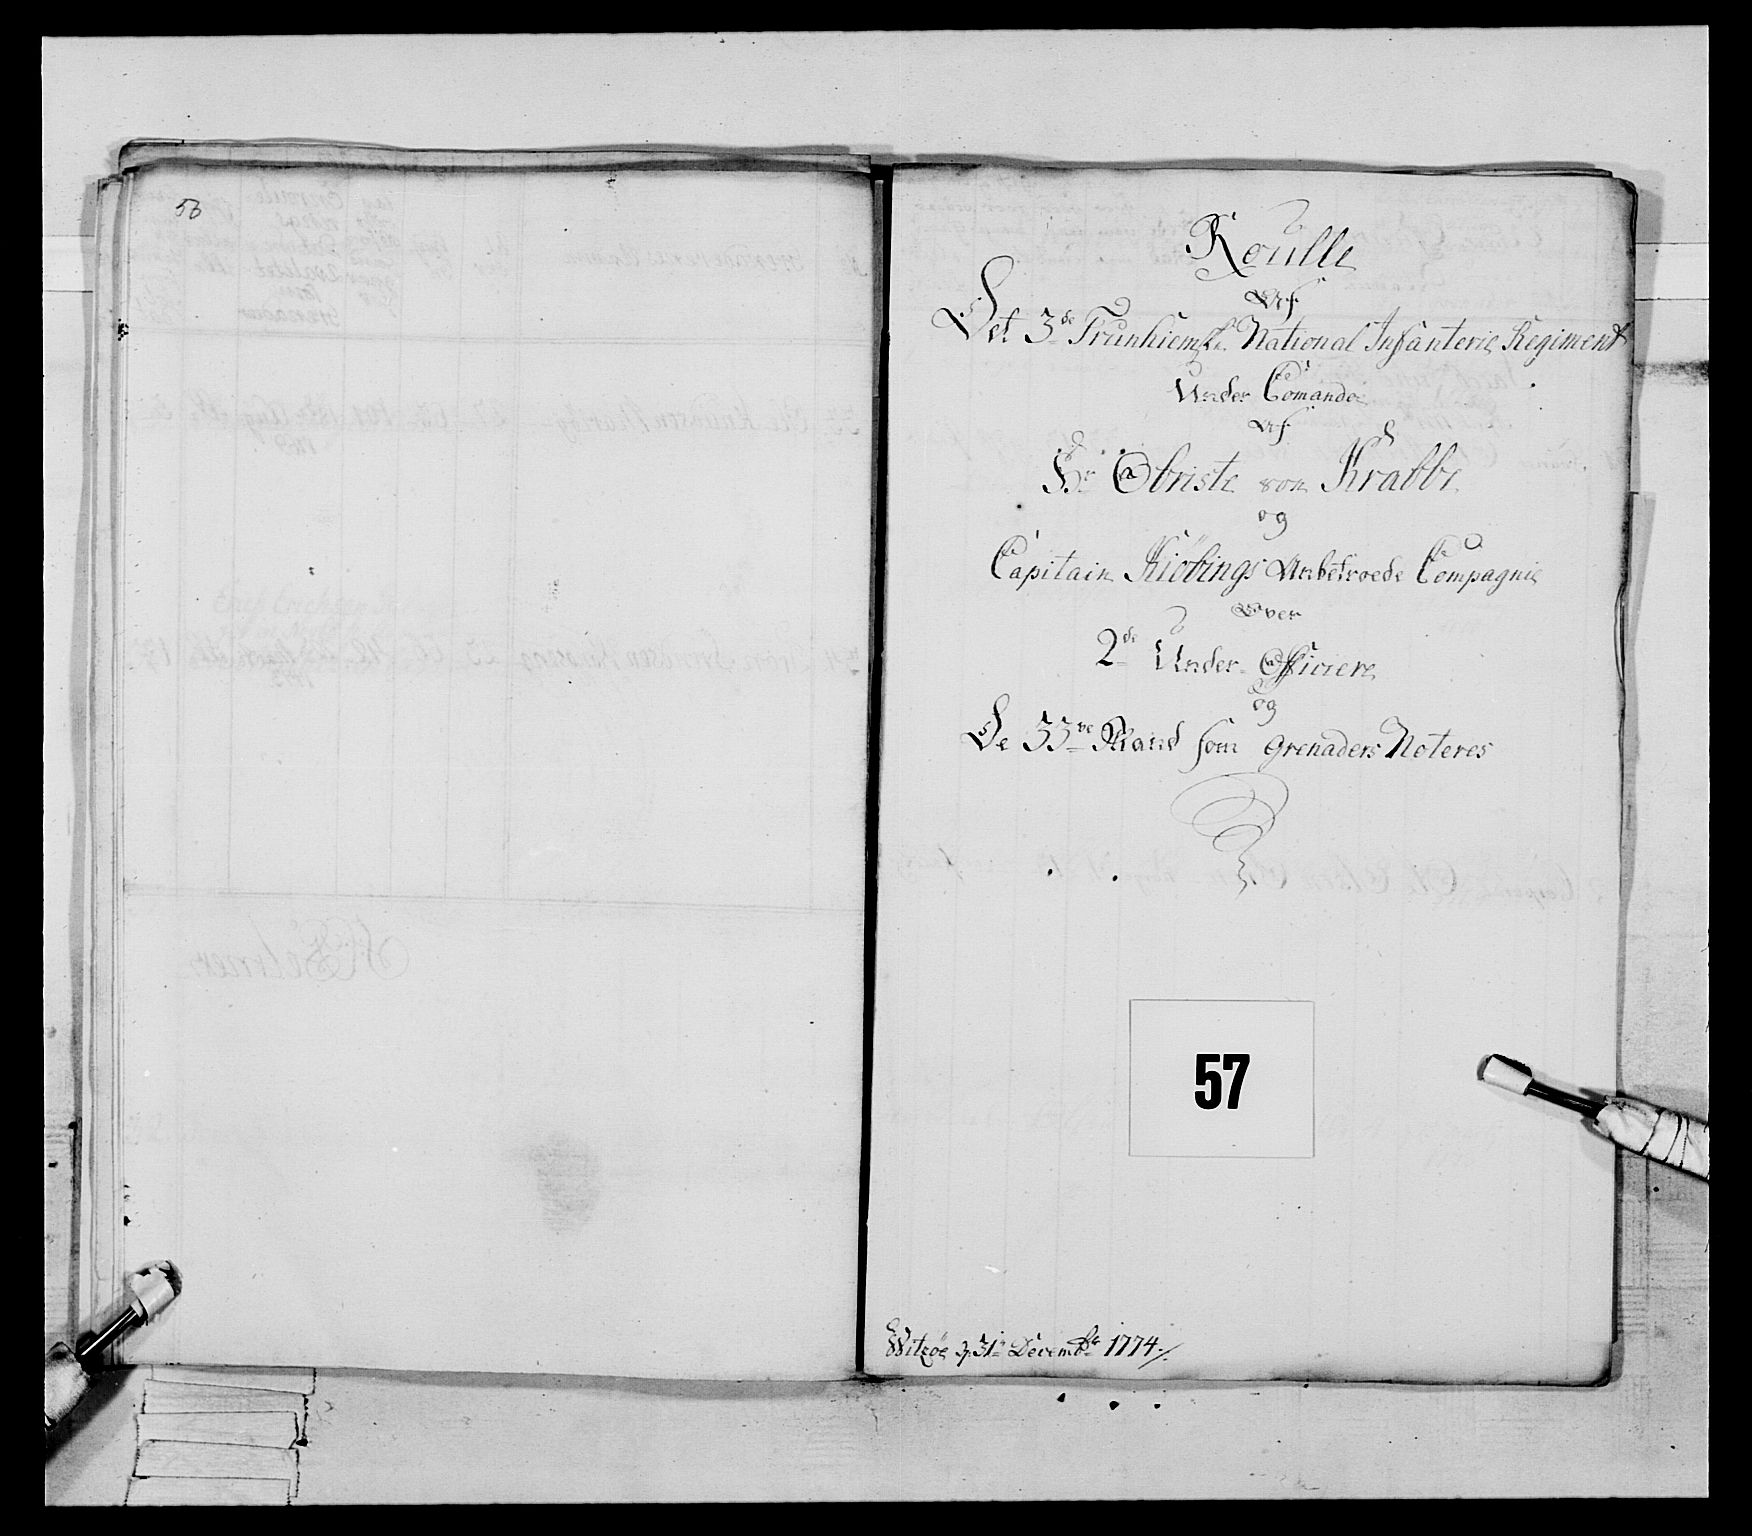 56
Roulle
Af
Det 3de Trunhiemske National Infanterie Regiment
Under Comando
Af
Hr Obriste von Krabbe
og
Capitain Kiöbings Anbetroede Compagnie
Over
2de Under Officiere
og
De 33ve Mand som Grenaders Noteres
57
d 31te Decembr 1774